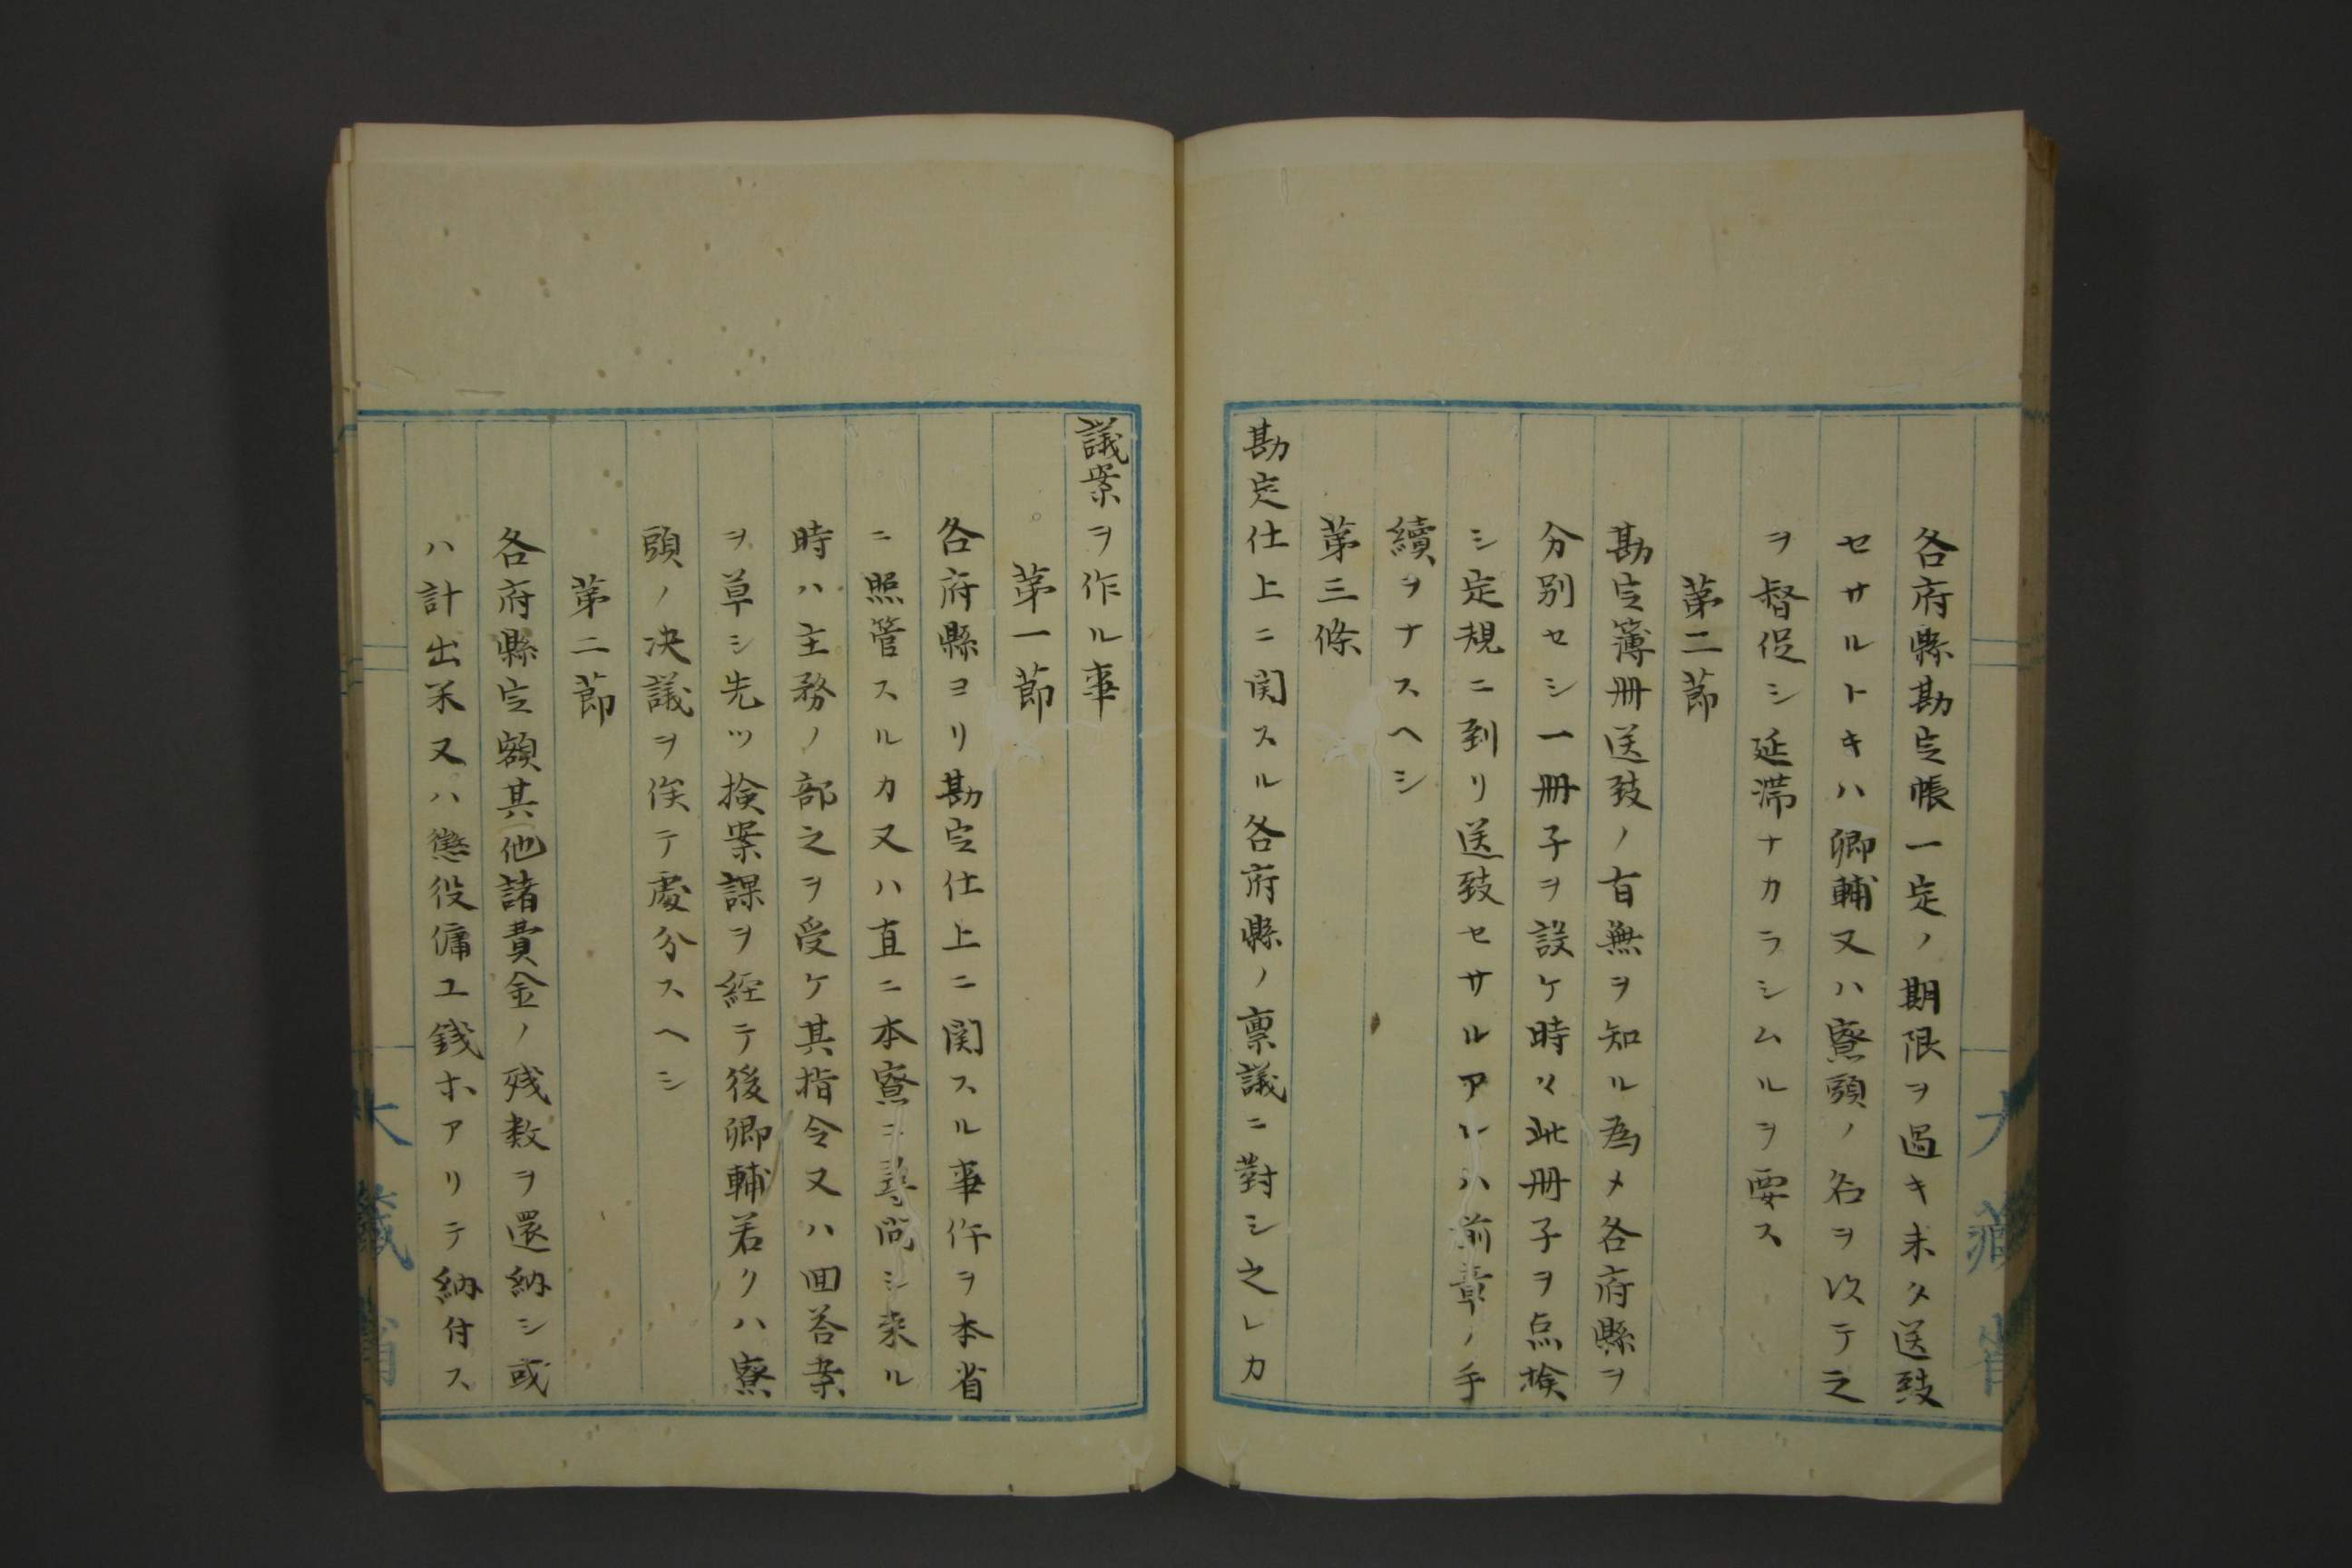 各府縣勘定帳一定ノ期限ヲ過キ未タ送致
セサルトキハ卿輔又ハ寮頭ノ名ヲ以テ之
ヲ督促シ延滞ナカラシムルヲ要ス
第二節
勘定簿冊送致ノ有無ヲ知ル為メ各府縣ヲ
分別セシ一冊子ヲ設ケ時々此冊子ヲ点検
シ定規ニ到リ送致セサルアレハ前章ノ手
續ヲナスヘシ
第三條
勘定仕上ニ関スル各府縣ノ禀議ニ對シ之レカ
議案ヲ作ル事
第一節
各府縣ヨリ勘定仕上ニ関スル事件ヲ本省
ニ照管スルカ又ハ直ニ本寮ニ尋問シ来ル
時ハ主務ノ部之ヲ受ケ其指令又ハ回答案
ヲ草シ先ツ検案課ヲ経テ後卿輔若クハ寮
頭ノ决議ヲ俟テ處分スヘシ
第二節
各府縣定額其他諸費金ノ残数ヲ還納シ或
ハ計出米又ハ懲役傭工錢ホアリテ納付ス
大藏省
大藏省